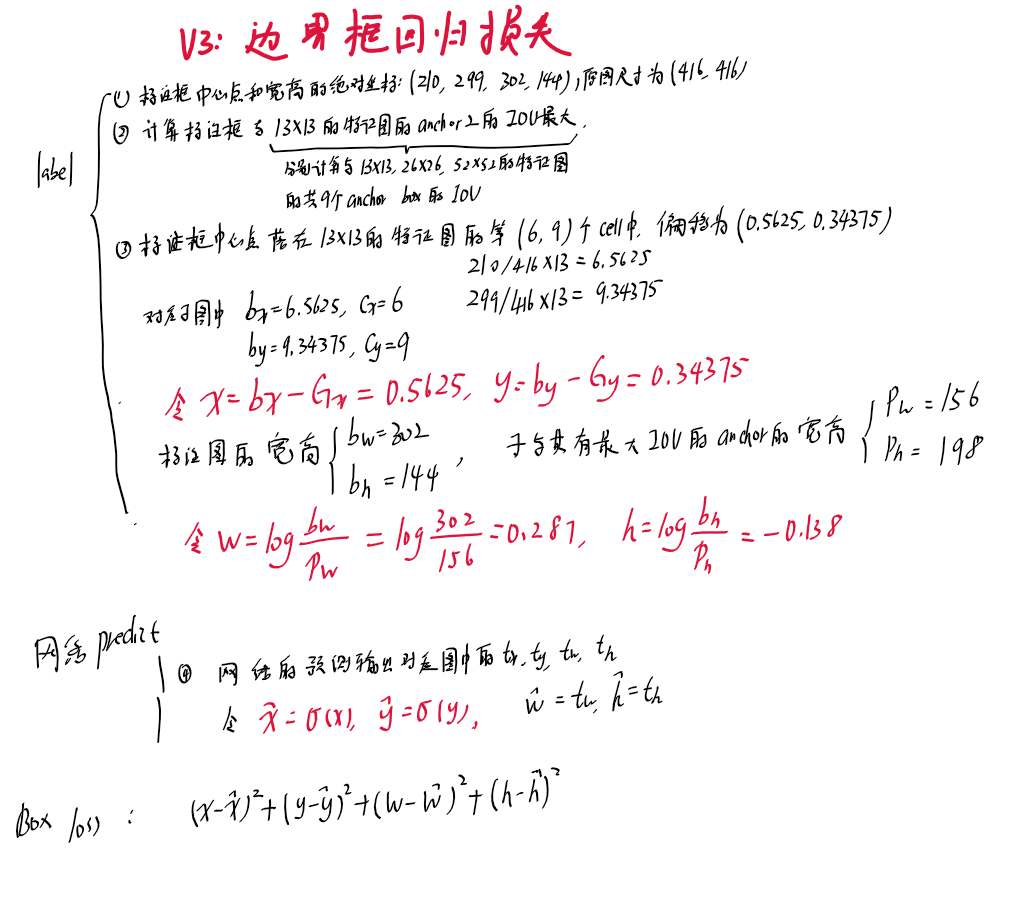 V3: 边界框回归损失
label
(1) 标注框中心点和宽高的绝对坐标: (210, 299, 302, 144), 原图尺寸为 (416, 416)
② 计算标注框与 13X13 的特征图的 anchor 2 的 IOU最大,
分别计算与 13X13, 26X26, 52X52 的特征图
的共9个 anchor box 的 IOU
③ 标注框中心点 落在 13X13 的 特征图的第 (6, 9) 个 cell中, 偏移为 (0.5625, 0.34375)
210/416X13 = 6.5625
299/416X13 = 9.34375
对应于图中 bx=6.5625, Cx=6
by=9.34375, Cy=9
令 x = bx - Gx = 0.5625, y = by - Gy = 0.34375
标注图的宽高 { bw=302 bh=144 , 于与其有最大IOU的 anchor的宽高 { Pw=156 Ph=198
令 w = log bw/Pw = log 302/156 = 0.287, h = log bh/Ph = -0.138
网络 predict
④ 网络的预测输出对应图中的 tx, ty, tw, th
令 x̂ = σ(x), ŷ = σ(y), ŵ = tw, ĥ = th
Box loss : (x-x̂)²+(y-ŷ)²+(w-ŵ)²+(h-ĥ)²